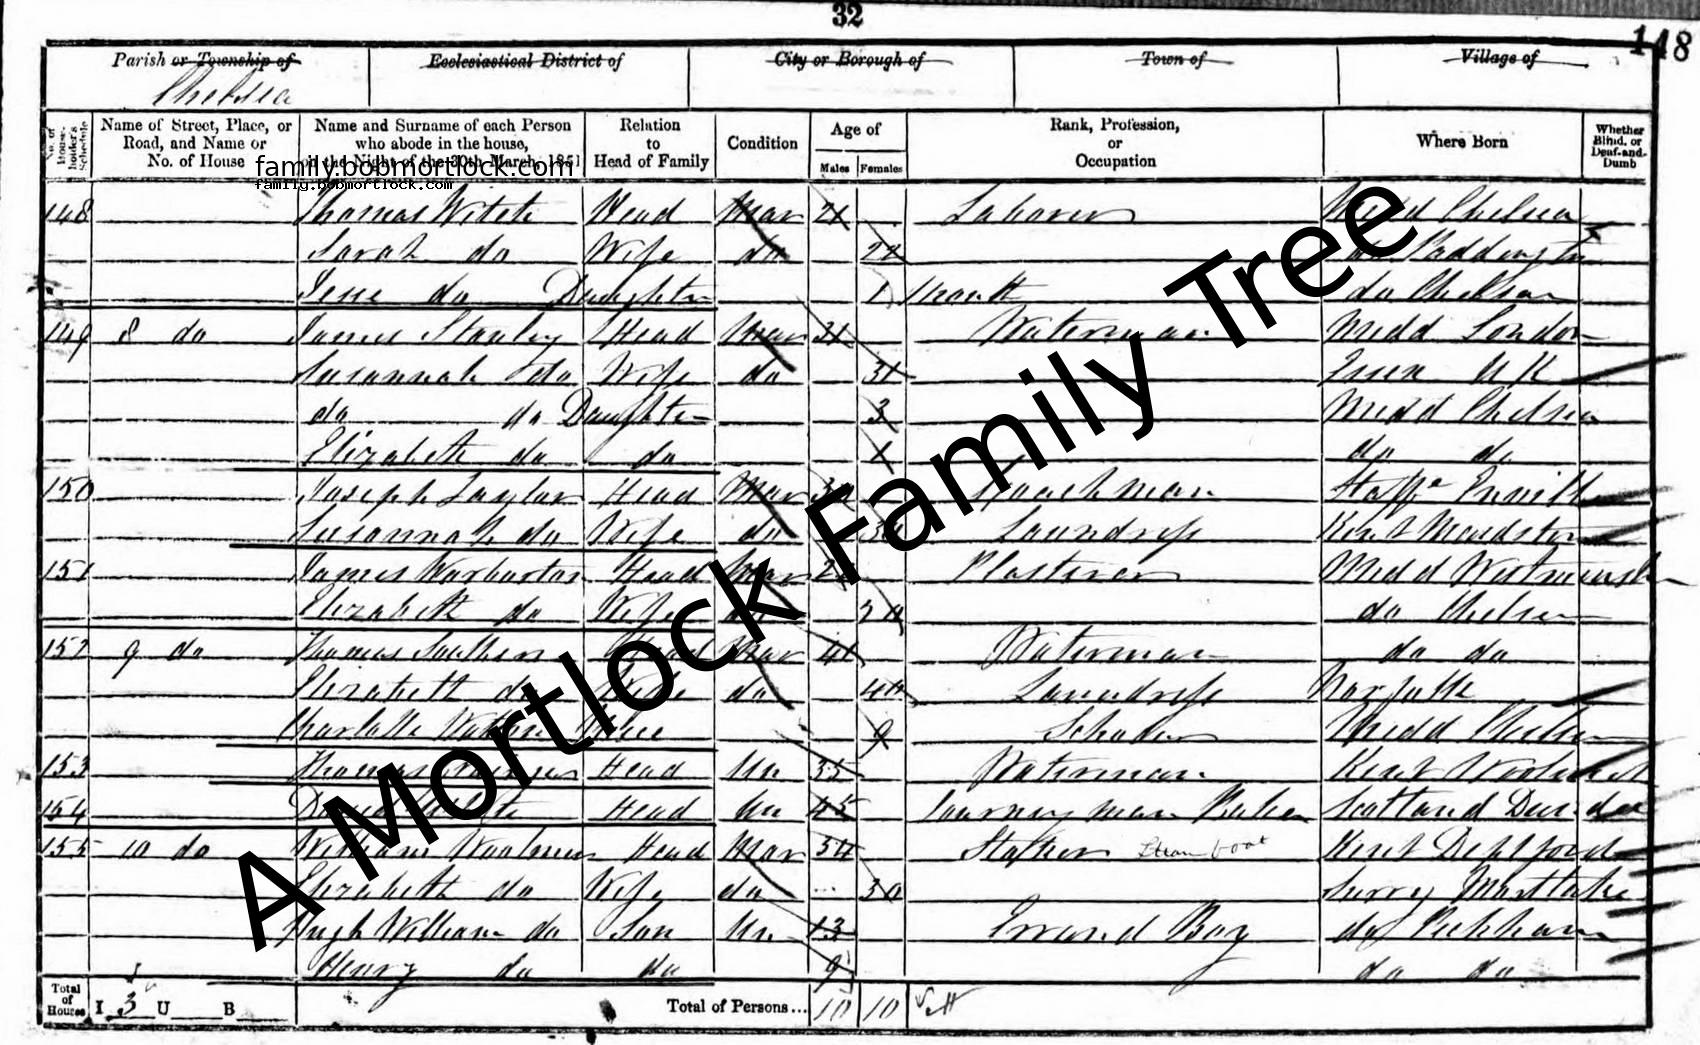 32
148
Parish or Township of Ecclesiastical District of City or Borough of Town of Village of
Chelsea
No. of House-holder's Schedule Name of Street, Place, or Road, and Name or No. of House Name and Surname of each Person who abode in the house, on the Night of the 30th March, 1851 Relation to Head of Family Condition Age of Males Females Rank, Profession, or Occupation Where Born Whether Blind, or Deaf-and-Dumb
family.bobmortlock.com
family.bobmortlock.com
A Mortlock Family Tree
148 Thomas Head Mar 21 Laborer Midd Chelsea
Sarah do Wife do 22 do Paddington
do Daughter 1 Month do Chelsea
149 8 do James Stanley Head Mar 31 Waterman Midd London
Susannah do Wife do 31 Essex N K
do do Daughter 3 Midd Chelsea
Elizabeth do do 1 do do
150 Joseph Taylor Head Mar Coachman
Susannah do Wife do 30 Laundress Kent Maidstone
151 James Warburton Head Mar Plasterer Midd Westminster
Elizabeth do Wife do do Chelsea
152 9 do Thomas Head Mar 41 Waterman do do
Elizabeth do Wife do 40 Laundress Norfolk
Charlotte 9 Scholar Midd Chelsea
153 Thomas Head Un 35 Waterman Kent Woolwich
154 Head Un 45 Journeyman Baker Scotland Dundee
155 10 do William Head Mar 34 Stoker Steam boat Kent Deptford
Elizabeth do Wife do 30 Surry Mortlake
Hugh William do Son Un 13 Errand Boy do Peckham
Henry do do 9 do do
Total of Houses I 3 U B Total of Persons... 10 10